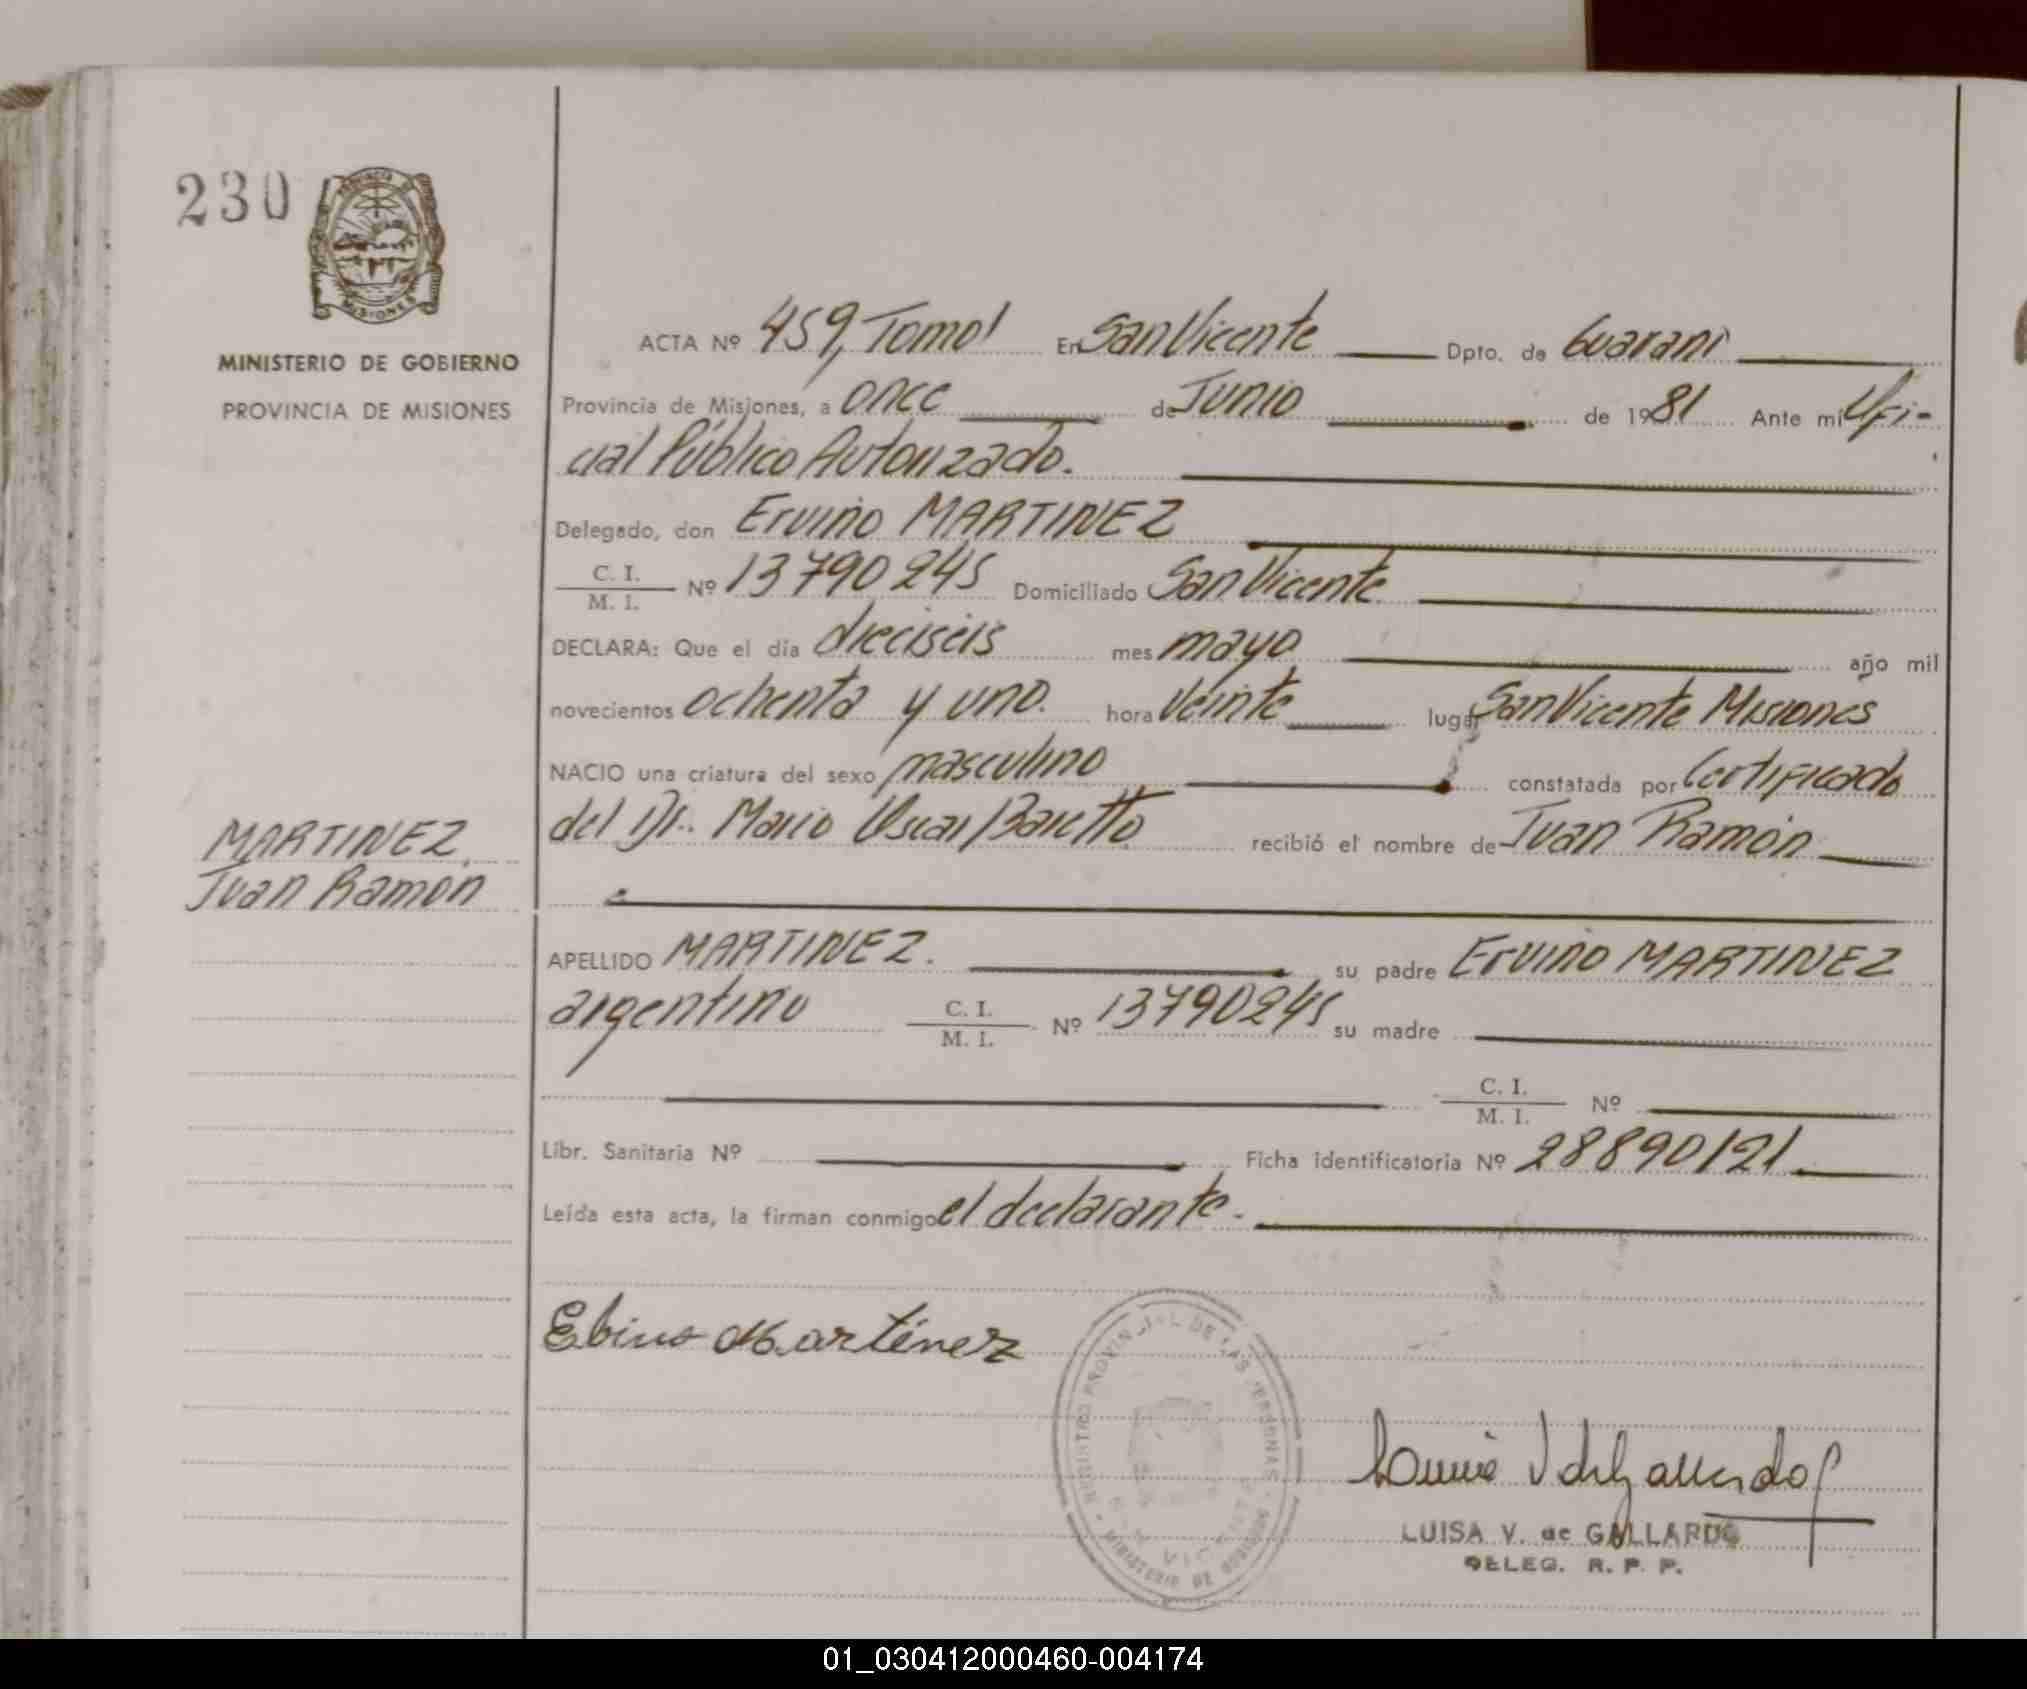 230
PROVINCIA DE
MISIONES
MINISTERIO DE GOBIERNO
PROVINCIA DE MISIONES
ACTA Nº 459, Tomo I En San Vicente Dpto. de Guaraní
Provincia de Misiones, a once de Junio de 1981 Ante mí Ofi-
cial Público Autorizado.
Delegado, don Erviño MARTINEZ
C. I. / M. I. Nº 13790245 Domiciliado San Vicente
DECLARA: Que el día dieciseis mes mayo año mil
novecientos ochenta y uno. hora veinte lugar San Vicente Misiones
NACIO una criatura del sexo masculino constatada por Certificado
del Dr. Mario Oscar Baretto recibió el nombre de Juan Ramón
MARTINEZ,
Juan Ramon
APELLIDO MARTINEZ. su padre Erviño MARTINEZ
argentino C. I. / M. I. Nº 13790245 su madre
C. I. / M. I. Nº
Libr. Sanitaria Nº Ficha identificatoria Nº 28890121
Leída esta acta, la firman conmigo el declarante.
Ebino Martinez
REGISTRO PROVINCIAL DE LAS PERSONAS - MINISTERIO DE GOBIERNO
SAN VICENTE
LUISA V. de GALLARDO
DELEG. R. P. P.
01_030412000460-004174